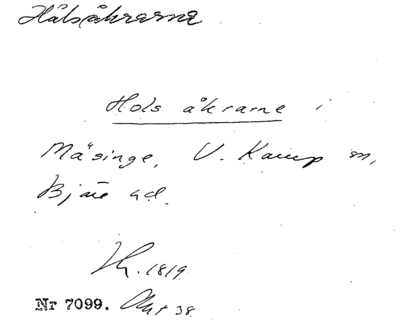 Hålsåkrarna
Hols åkrarne i
Mäsinge, V. Karup sn,
Bjäre hd.
1819
Nr 7099. Akt 38